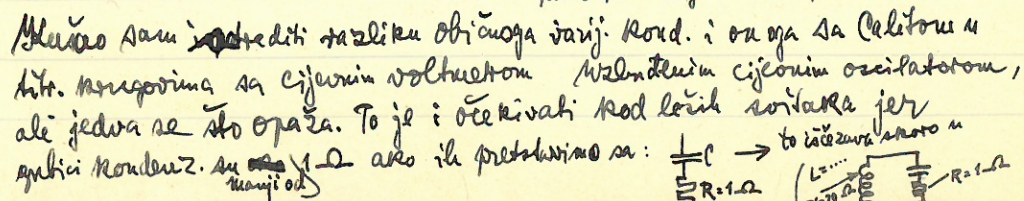 Kušao sam odrediti razliku običnoga varij. kond. i onoga sa Calitom u
titr. krugovima sa cijevnim voltmetrom uzbuđenim cijevnim oscilatorom,
ali jedva se što opaža. To je i očekivati kod loših svitaka jer
gubici kondenz. su manji od 1 Ω ako ih pretstavimo sa: C R=1Ω → to iščezava skoro u
L=.... R=1Ω